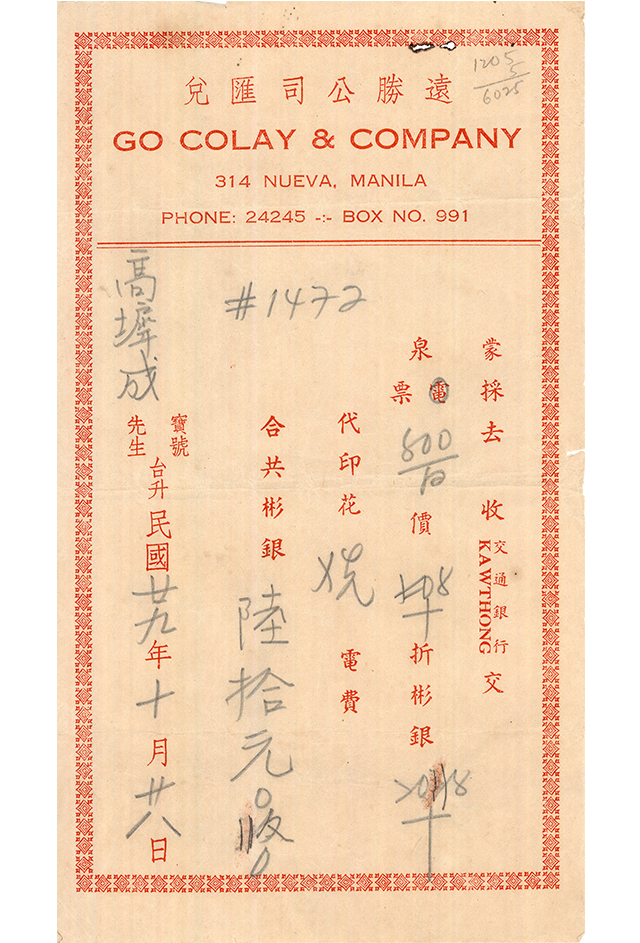 遠勝公司匯兌
1205
5
6025
GO COLAY & COMPANY
314 NUEVA, MANILA
PHONE: 24245 -:- BOX NO. 991
蒙採去 收 交通銀行 KAWTHONG 交
泉 電票 價 折彬銀
代印花 電費
#1472
合共彬銀 陸拾元
高墀成 寶號 先生 台升 民國廿九年十月廿八日